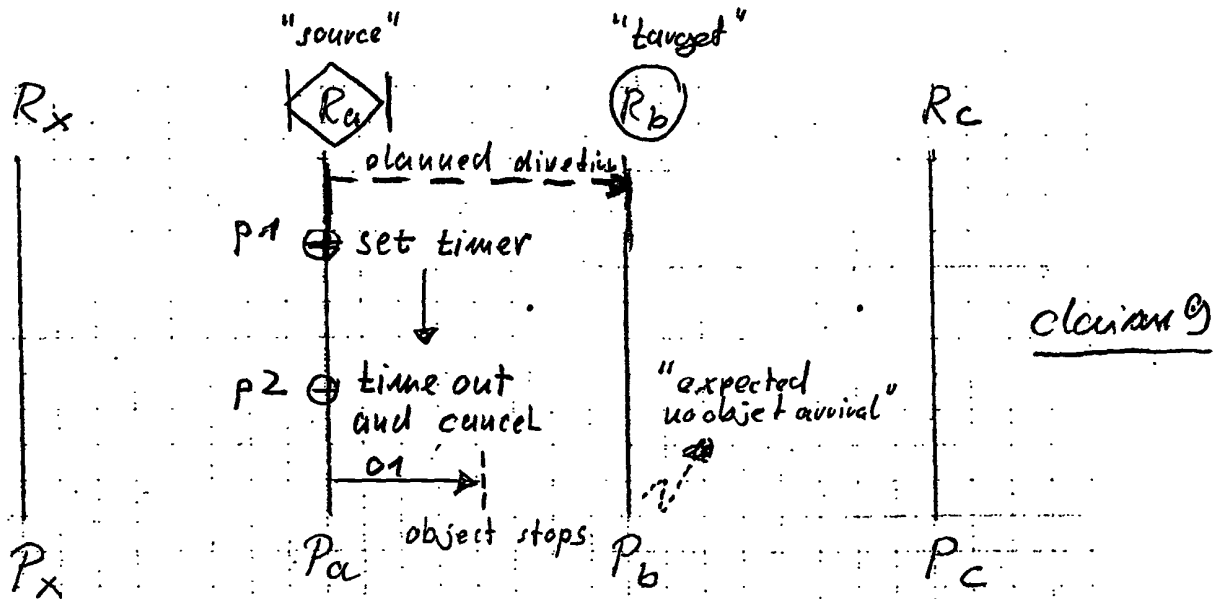 "source" "target"
Rx Ra Rb Rc
planned direction
p1 set timer
p2 time out
and cancel
"expected
no object arrival"
claim 9
O1
object stops
Px Pa Pb Pc